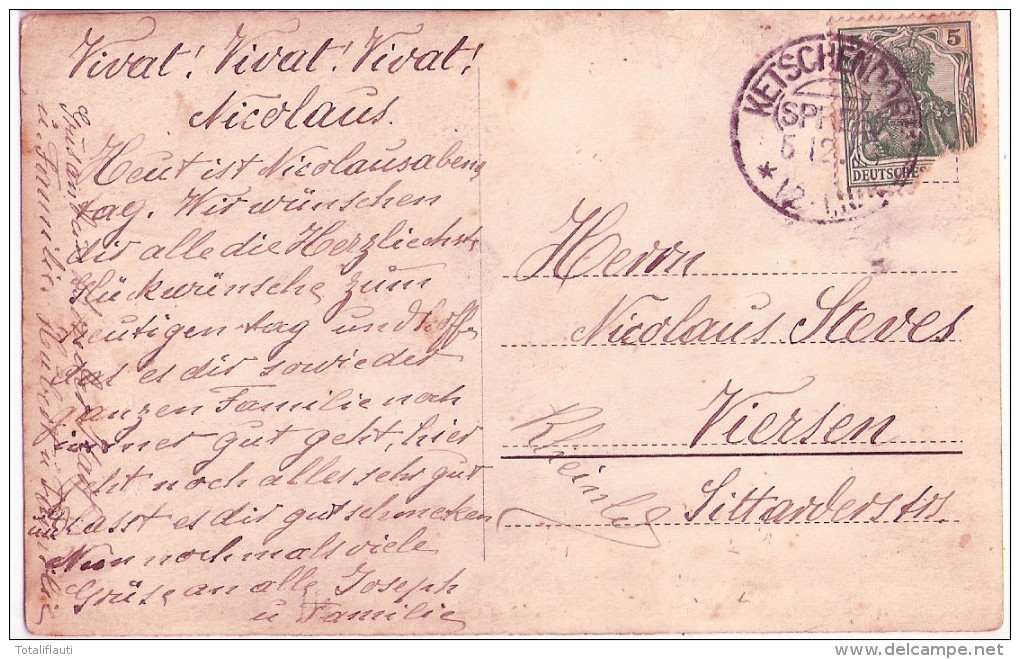 Vivat! Vivat! Vivat!
Nicolaus.
Heut ist Nicolausaben
tag. Wir wünschen
dir alle die Herzliechste
Glückwünsche zum
heutigen tag und hoffe
das es dir sowieder
ganzen Familie noch
immer gut geht, hier
geht noch alles sehr gut
Lasst es dir gut schmecken
Nun nochmals viele
Grüse an alle Joseph
u Familie
Familie
KETSCHENDORF
SPREE
5 12.
* 12-1
5
DEUTSCHES
Herrn
Nicolaus Steves
Viersen
Rheinld
Sittarderstr.
Totaliflauti
delcampe.net